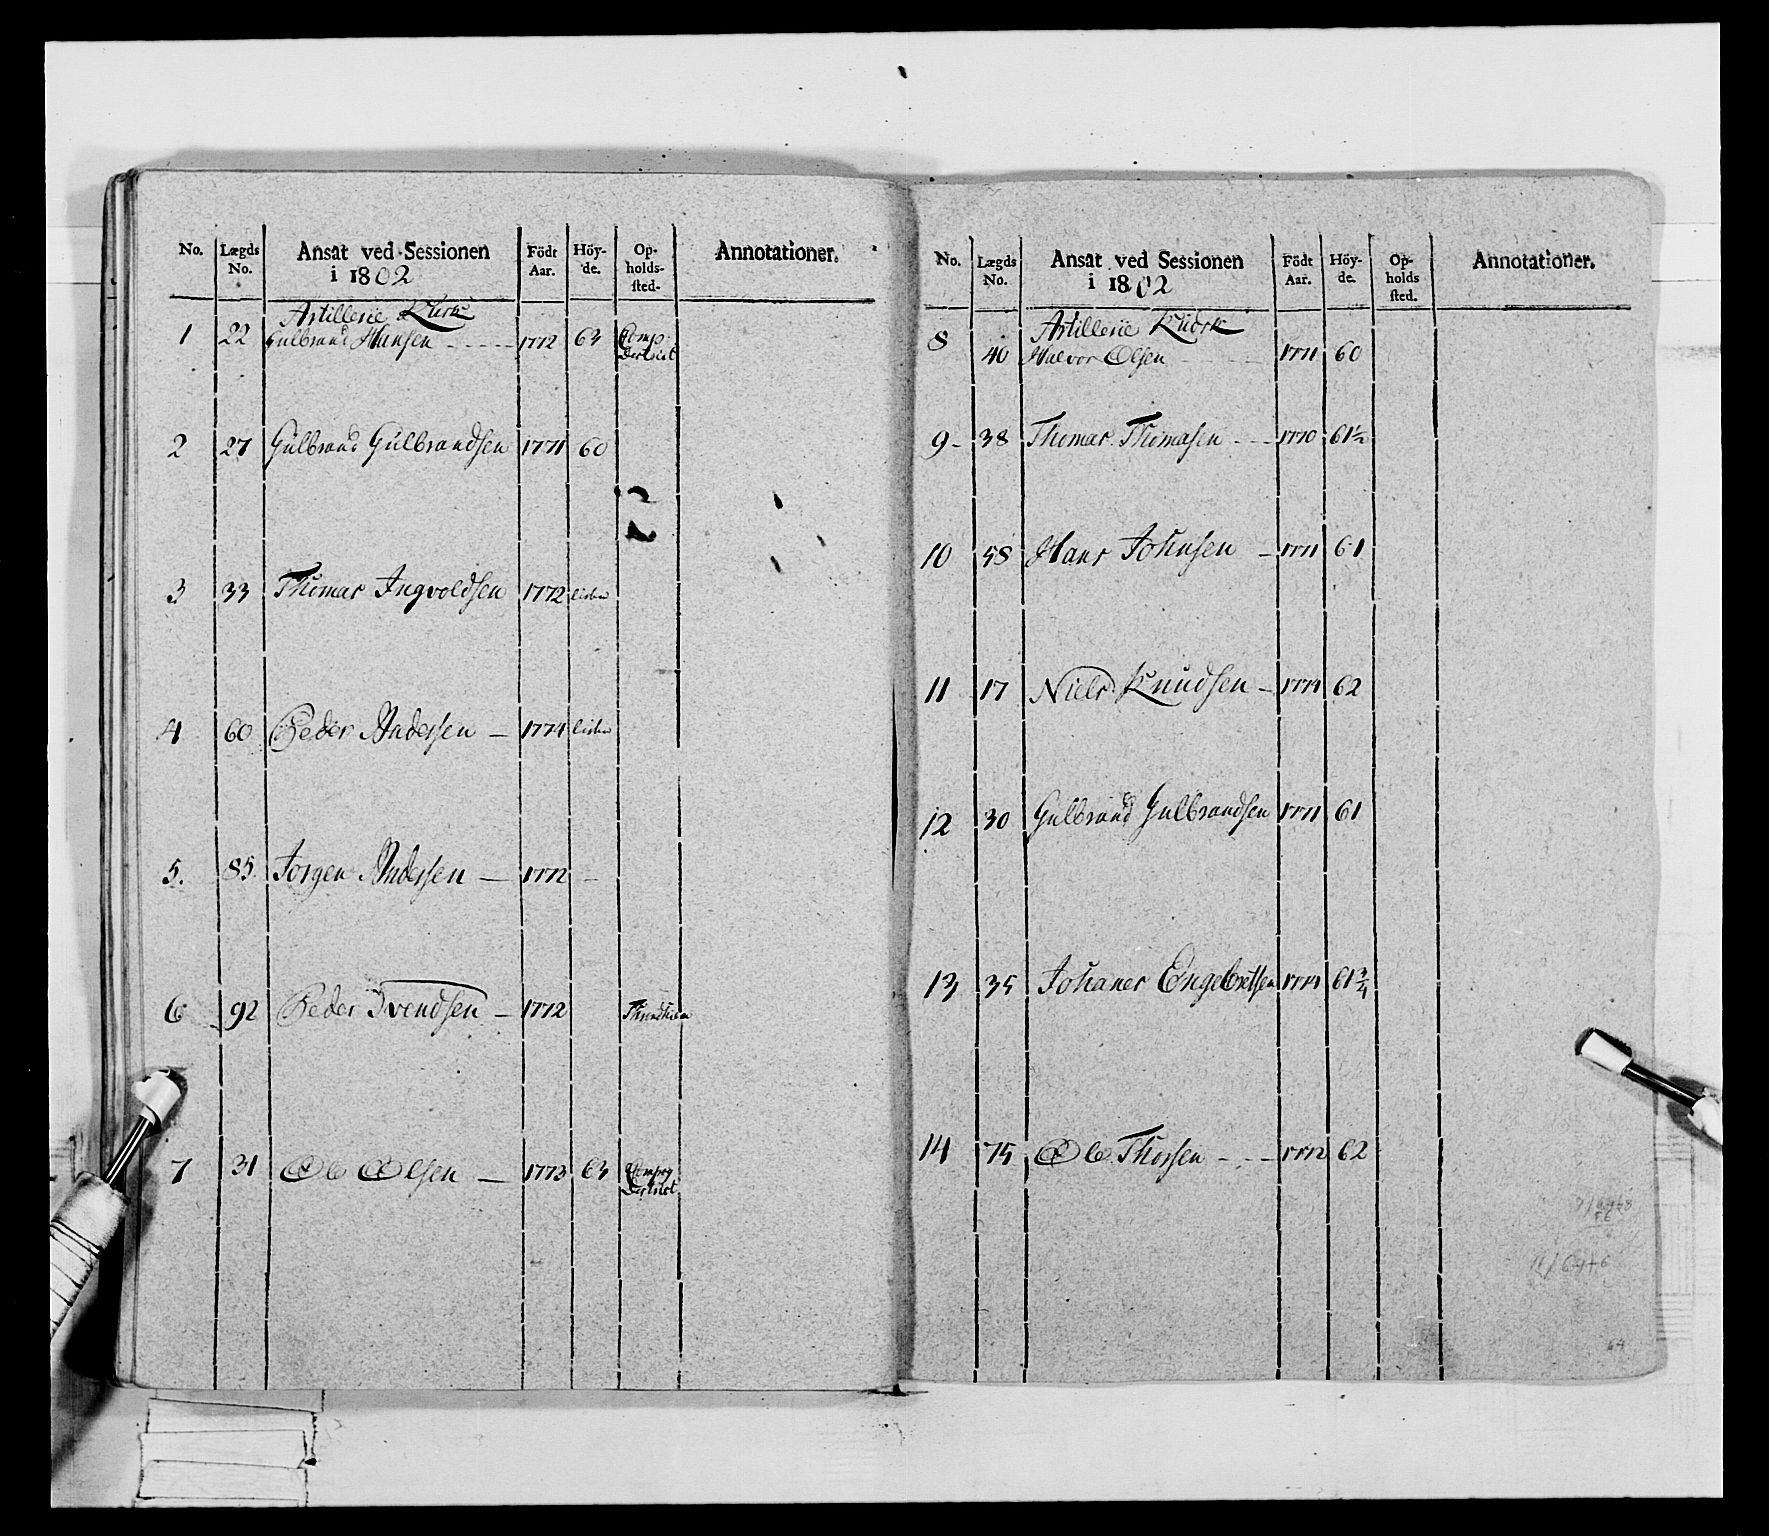 No. Lægds No. Ansat ved Sessionen i 1802 Födt Aar. Höy-de. Op-holds-sted. Annotationer.
Artillerie Kusk
1 22 Gulbrand Hansen 1772 63 Comp Destrict
2 27 Gulbrand Gulbrandsen 1771 60
3 33 Thomas Ingvoldsen 1772
4 60 Peder Andersen 1774
5. 85 Jørgen Andersen 1772 —
6 92 Peder Svendsen 1772
7 31 Ole Olsen 1773 63 Compag Destrict
No. Lægds No. Ansat ved Sessionen i 1802 Födt Aar. Höy-de. Op-holds sted. Annotationer.
Artillerie Kudsk
8 40 Halvor Olsen 1771 60
9 38 Thomas Thomasen 1770 61½
10 58 Hans Johnsen 1771 61
11 17 Niels Knudsen 1774 62
12 30 Gulbrand Gulbrandsen 1771 61
13 35 Johanes Engebretsen 1774 61¾
14 75 Ole Thorsen 1772 62
64